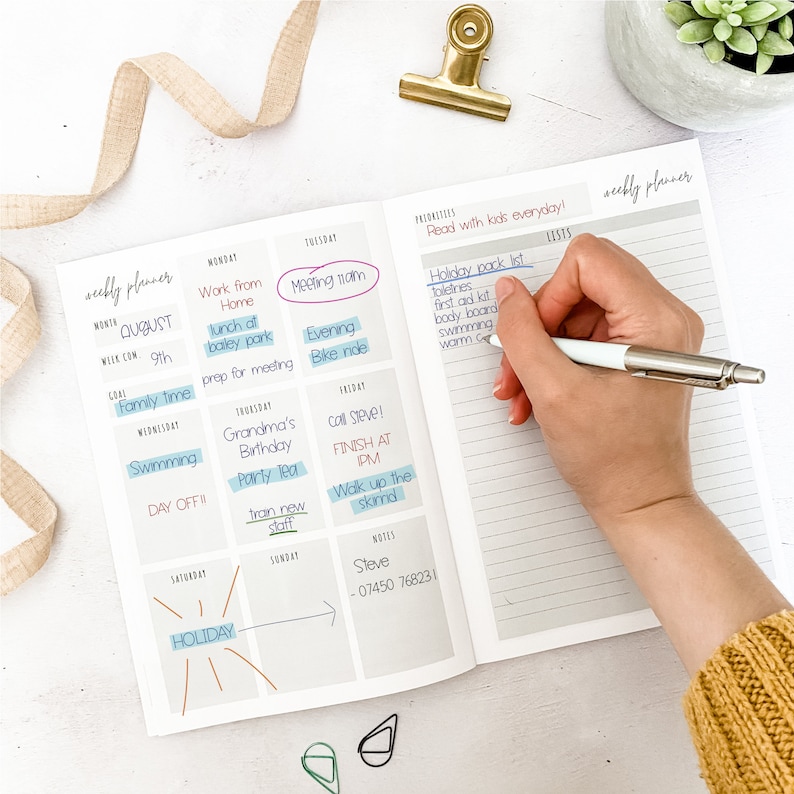 weekly planner
MONTH
AUGUST
WEEK COM.
9th
GOAL
Family time
MONDAY
Work from
Home
lunch at
bailey park
prep for meeting
TUESDAY
Meeting 11am
Evening
Bike ride
WEDNESDAY
Swimming
DAY OFF!!
THURSDAY
Grandma's
Birthday
Party Tea
train new
staff
FRIDAY
call Steve!
FINISH AT
1PM
Walk up the
skirrid
SATURDAY
HOLIDAY
SUNDAY
NOTES
Steve
- 07450 768231
weekly planner
PRIORITIES
Read with kids everyday!
LISTS
Holiday pack list
toiletries
first aid kit
body board
swimming
warm